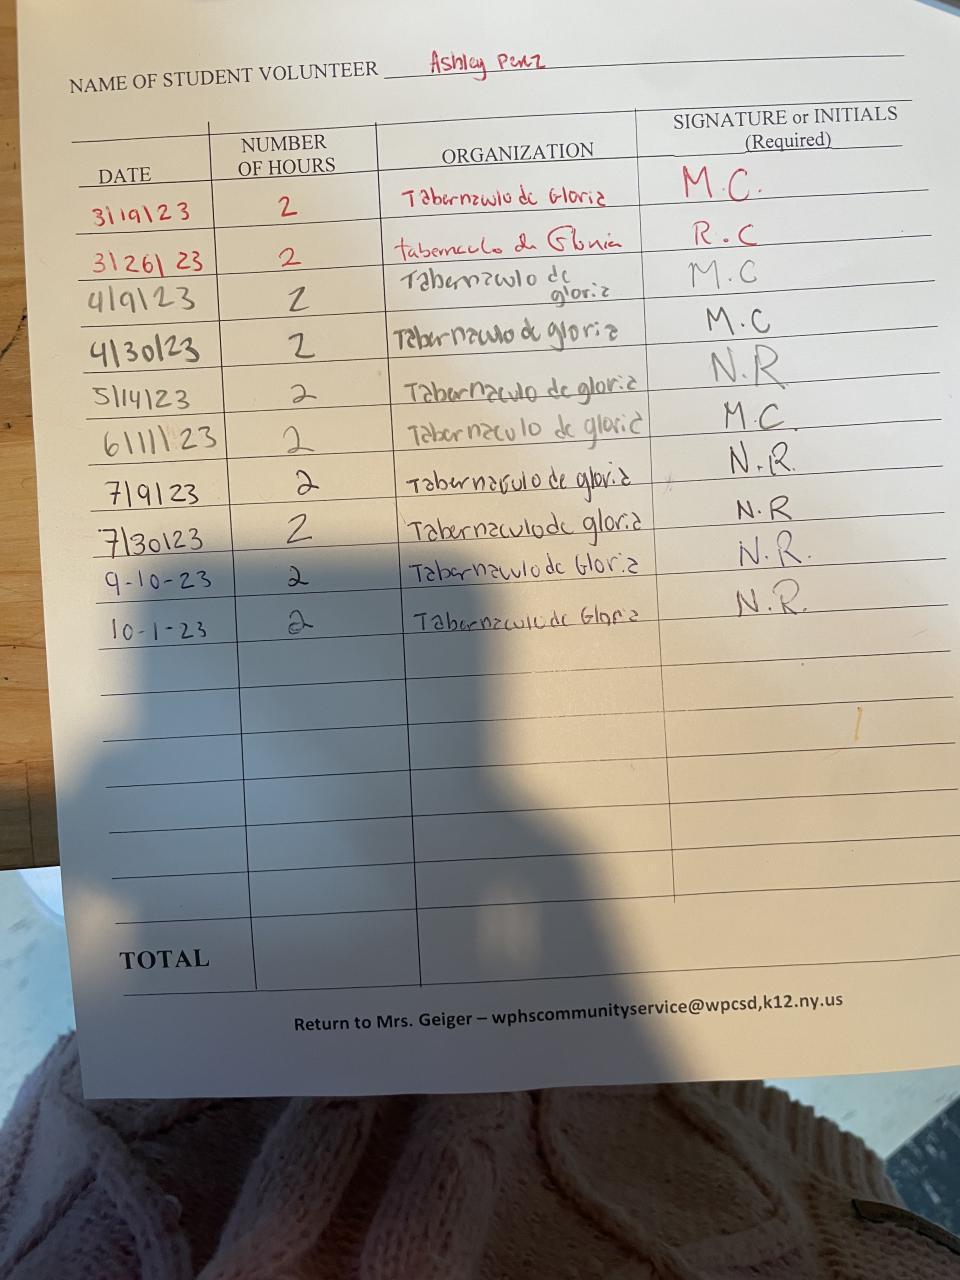 NAME OF STUDENT VOLUNTEER Ashley Perez
DATE NUMBER OF HOURS ORGANIZATION SIGNATURE or INITIALS (Required)
3/19/23 2 Tabernaculo de Gloria M.C.
3/26/23 2 tabernaculo de Gloria R.C
4/9/23 2 Tabernaculo de gloria M.C
4/30/23 2 Tabernaculo de gloria M.C
5/14/23 2 Tabernaculo de gloria N.R
6/11/23 2 Tabernaculo de gloria M.C.
7/9/23 2 Tabernaculo de gloria N.R.
7/30/23 2 Tabernaculo de gloria N.R
9-10-23 2 Tabernaculo de Gloria N.R.
10-1-23 2 Tabernaculo de Gloria N.R.
TOTAL
Return to Mrs. Geiger – wphscommunityservice@wpcsd,k12.ny.us